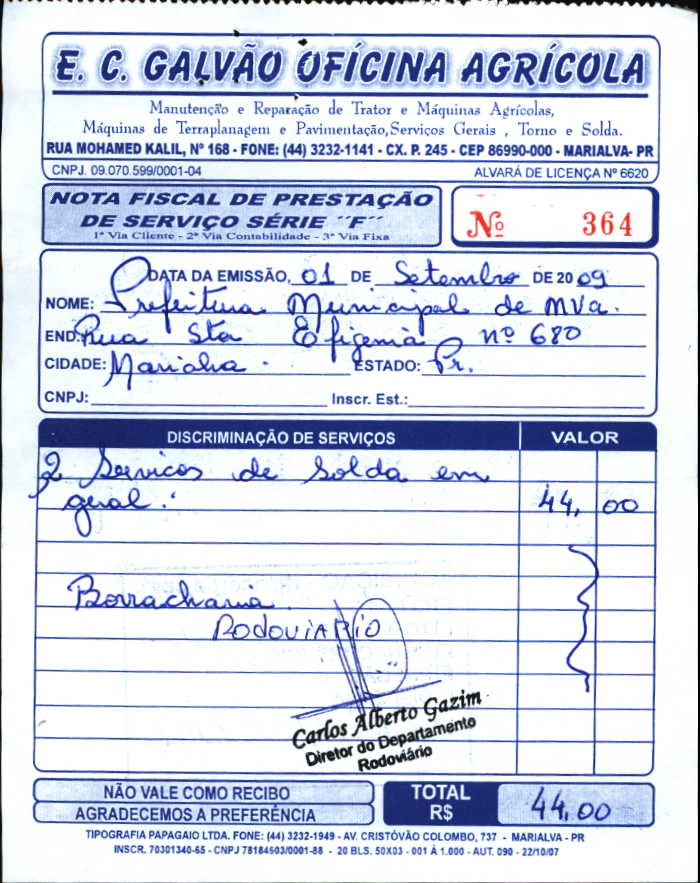 E. C. GALVÃO OFÍCINA AGRÍCOLA
Manutenção e Reparação de Trator e Máquinas Agrícolas,
Máquinas de Terraplanagem e Pavimentação,Serviços Gerais , Torno e Solda.
RUA MOHAMED KALIL, Nº 168 - FONE: (44) 3232-1141 - CX. P. 245 - CEP 86990-000 - MARIALVA- PR
CNPJ. 09.070.599/0001-04 ALVARÁ DE LICENÇA Nº 6620
NOTA FISCAL DE PRESTAÇÃO
DE SERVIÇO SÉRIE ´´F´´
1ª Via Cliente - 2ª Via Contabilidade - 3ª Via Fixa
Nº 364
DATA DA EMISSÃO, 01 DE Setembro DE 2009
NOME: Prefeitura Municipal de MVa.
END: Rua Sta Efigenia nº 680
CIDADE: Marialva. ESTADO: Pr.
CNPJ: Inscr. Est.:
DISCRIMINAÇÃO DE SERVIÇOS VALOR
2 Servicos de Solda em
geral. 44,00
Borracharia.
RODOVIARIO
Carlos Alberto Gazim
Diretor do Departamento
Rodoviário
NÃO VALE COMO RECIBO
AGRADECEMOS A PREFERÊNCIA
TOTAL
R$ 44,00
TIPOGRAFIA PAPAGAIO LTDA. FONE: (44) 3232-1949 - AV. CRISTÓVÃO COLOMBO, 737 - MARIALVA - PR
INSCR. 70301340-65 - CNPJ 78184603/0001-88 - 20 BLS. 50X03 - 001 À 1.000 - AUT. 090 - 22/10/07